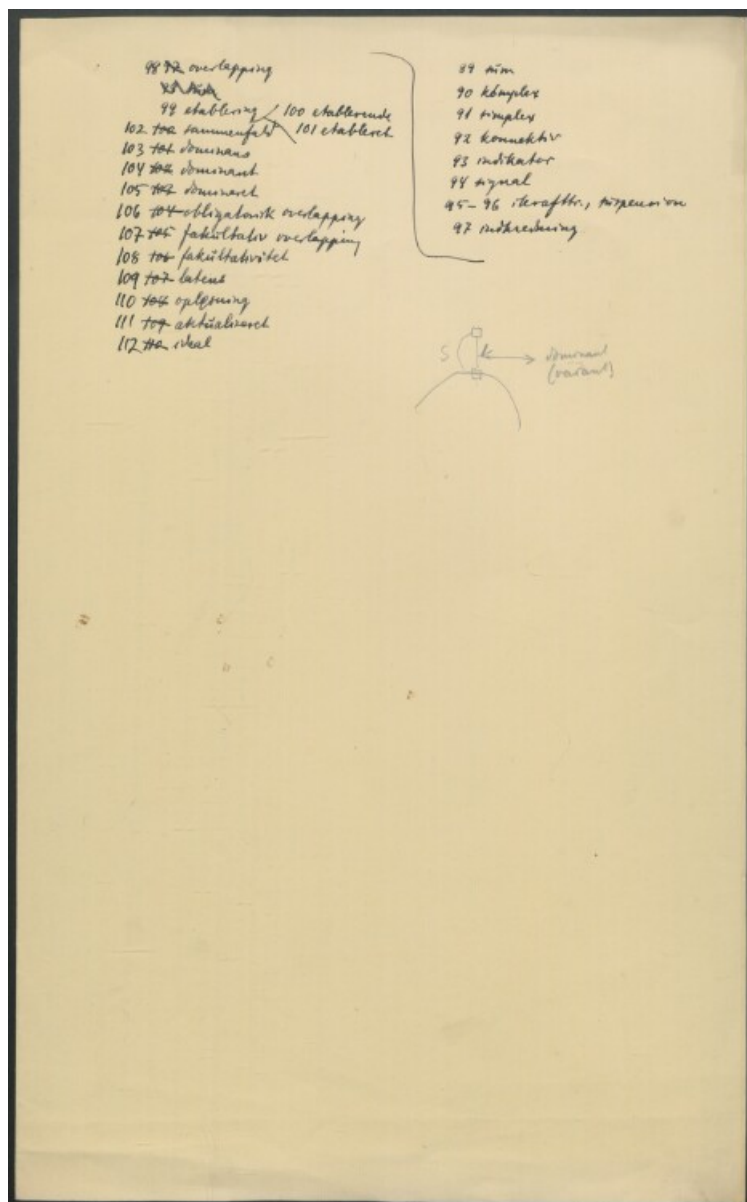 98 97 overlapping
99 etablering
100 etablerende
101 etableret
102 100 sammenfald
103 101 dominans
104 102 dominant
105 103 domineret
106 104 obligatorisk overlapping
107 105 fakultativ overlapping
108 106 fakultativitet
109 107 latens
110 108 opløsning
111 109 aktualiseret
112 110 ideal
89 sum
90 komplex
91 simplex
92 konnektiv
93 indikator
94 signal
95-96 ikrafttr., suspension
97 indkredsning
S k dominant
(variant)